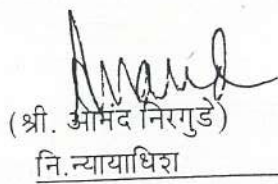 (श्री. आनंद निरगुडे)
नि.न्यायाधिश